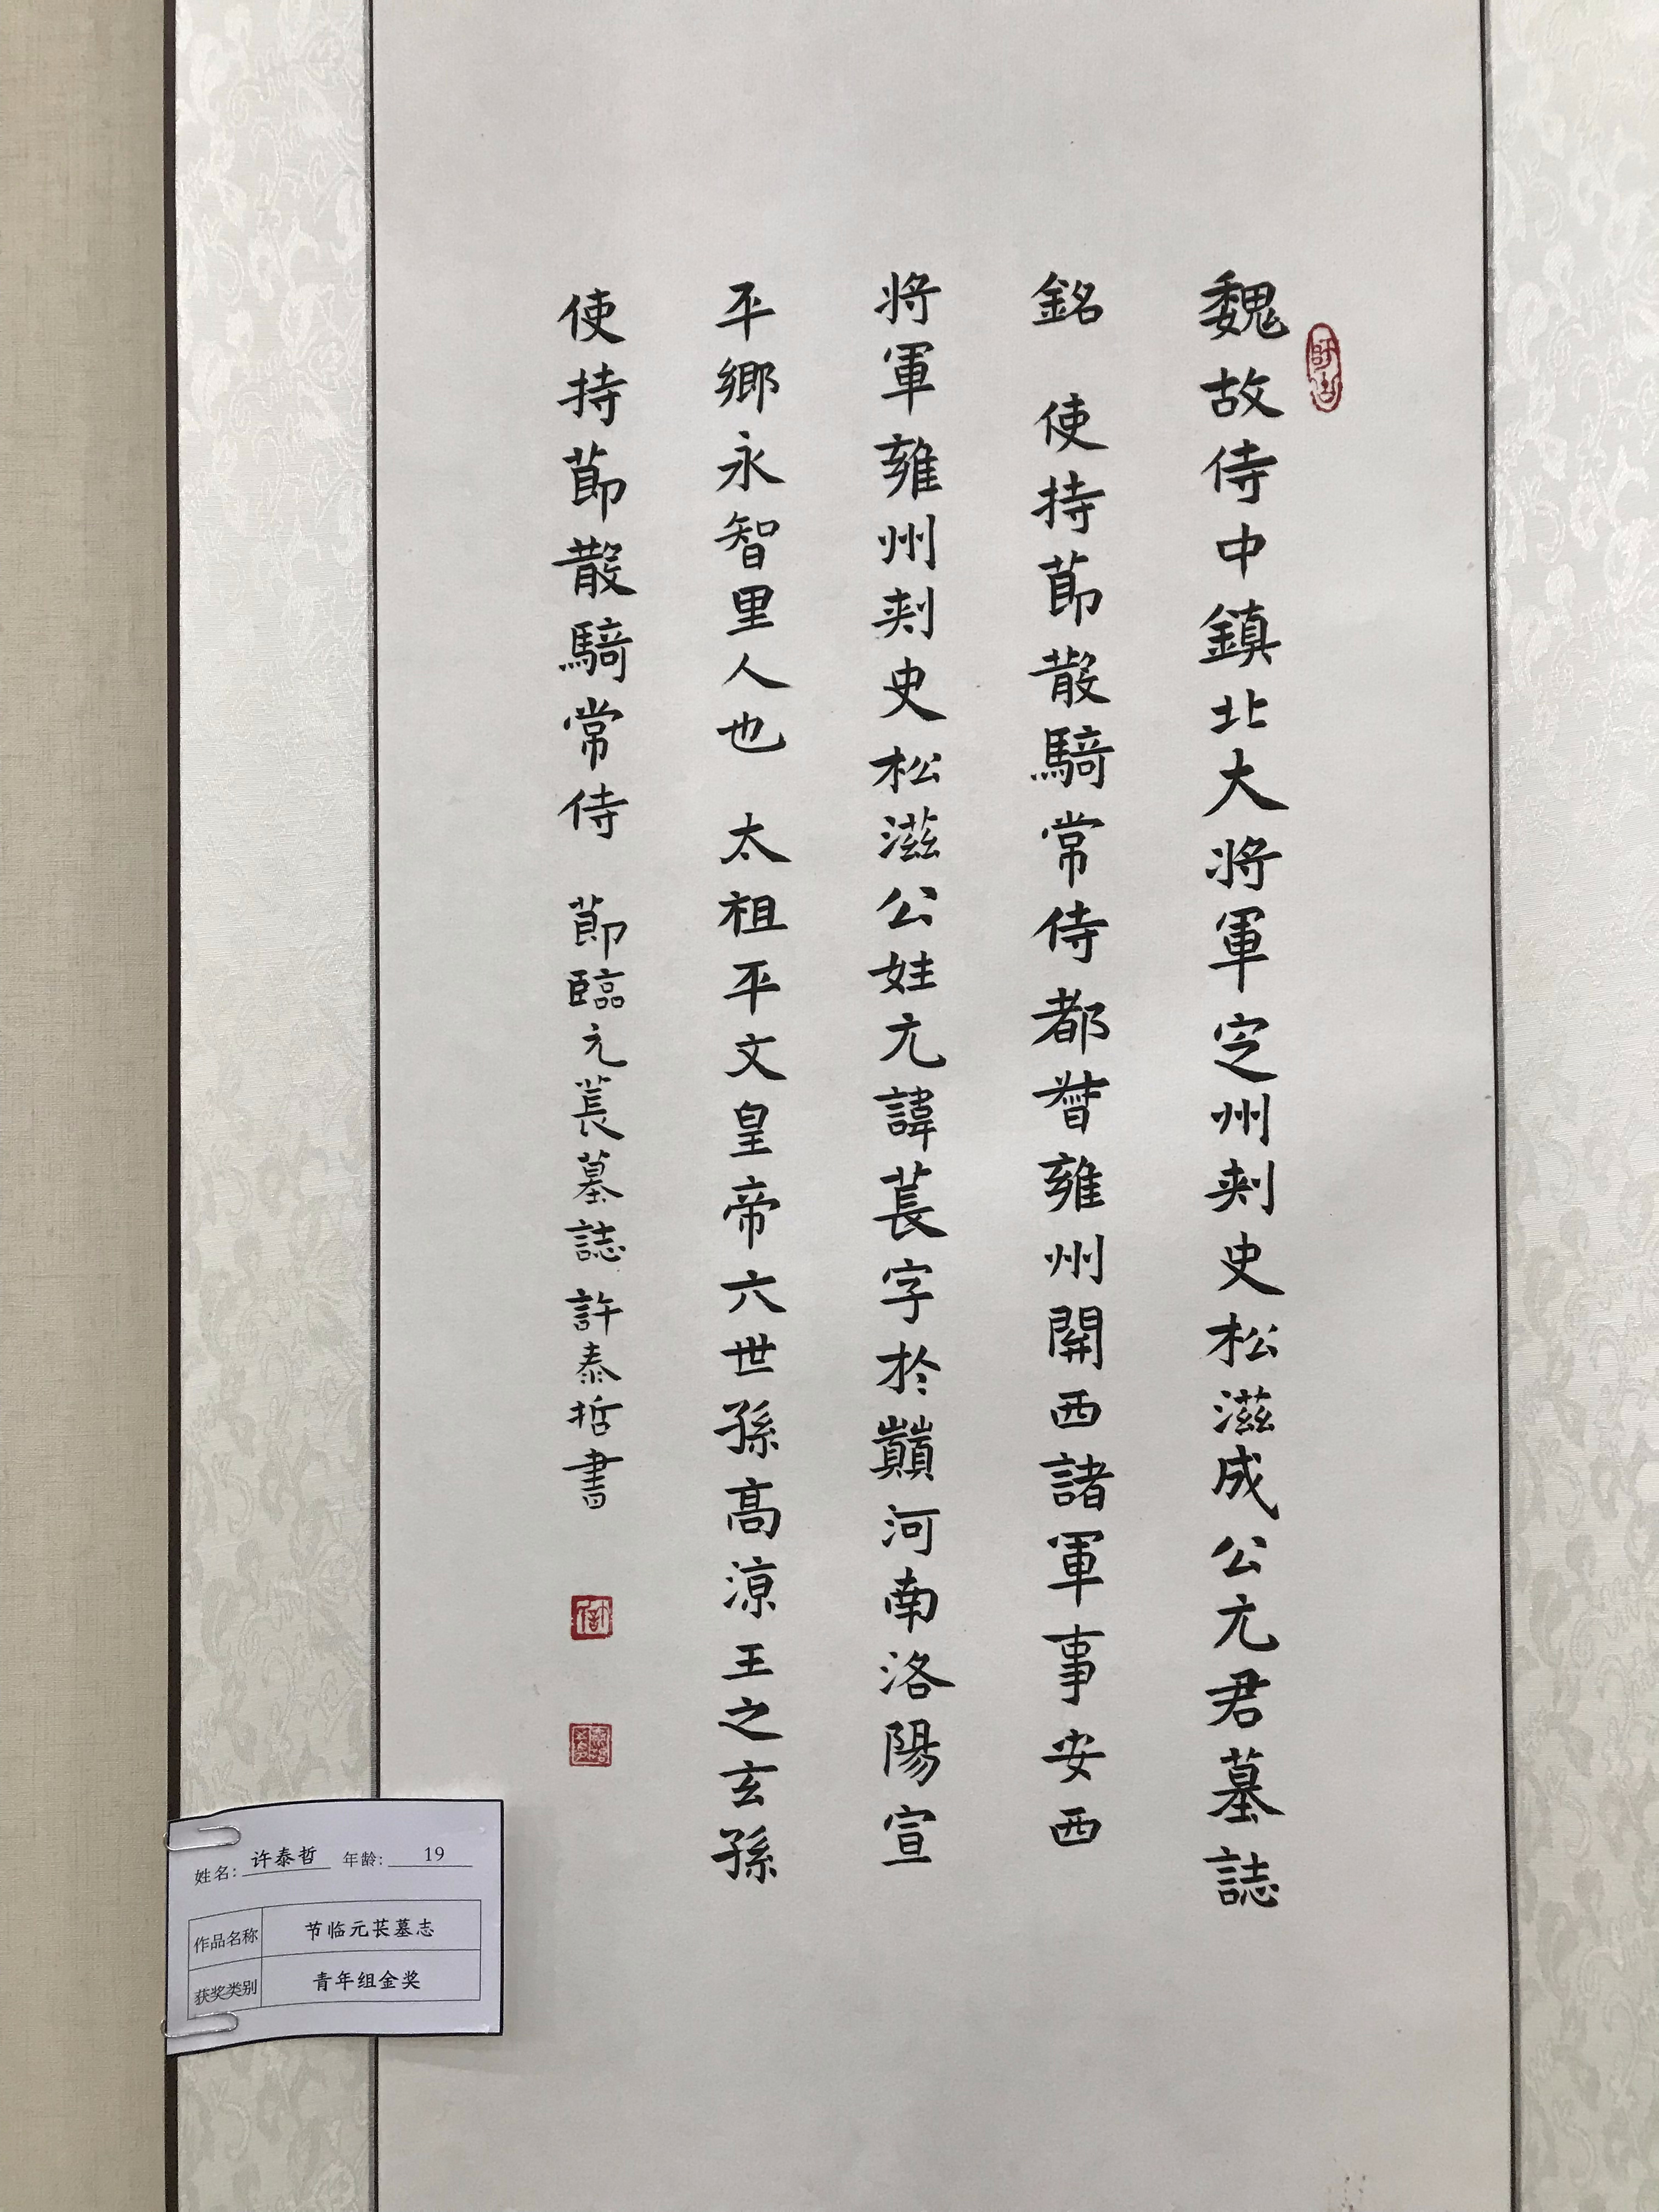 魏故侍中鎮北大将軍定州刺史松滋成公元君墓誌
銘 使持節散騎常侍都督雍州關西諸軍事安西
将軍雍州刺史松滋公姓元諱萇字於巔河南洛陽宣
平鄉永智里人也 太祖平文皇帝六世孫高涼王之玄孫
使持節散騎常侍 節臨元萇墓誌 許泰哲書
姓名: 许泰哲 年龄: 19
作品名称 节临元苌墓志
获奖类别 青年组金奖